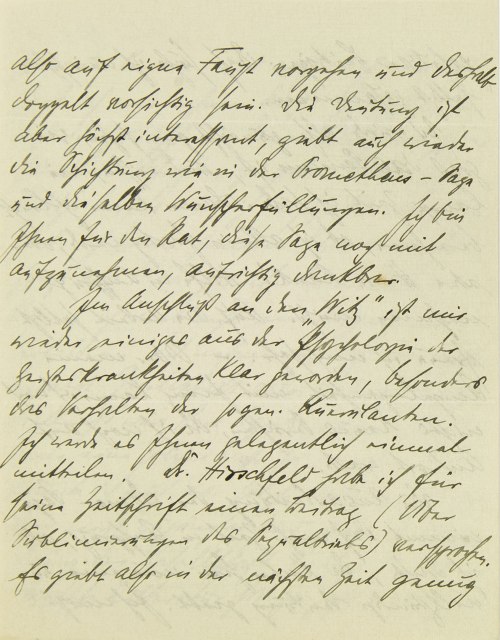 also auf eigne Faust vorgehen und deshalb
doppelt vorsichtig sein. Die Deutung ist
aber höchst interessant, giebt auch wieder
die Schichtung wie in der Prometheus-Sage
und dieselben Wunscherfüllungen. Ich bin
Ihnen für den Rat, diese Sage noch mit
aufzunehmen, aufrichtig dankbar.
Im Anschluß an den „Witz" ist mir
wieder einiges aus der Psychologie der
Geisteskrankheiten klar geworden, besonders
das Verhalten der sogen. Querulanten.
Ich werde es Ihnen gelegentlich einmal
mitteilen. Dr. Hirschfeld habe ich für
seine Zeitschrift einen Beitrag (Über
Sublimierungen des Sexualtriebs) versprochen.
Es giebt also in der nächsten Zeit genug